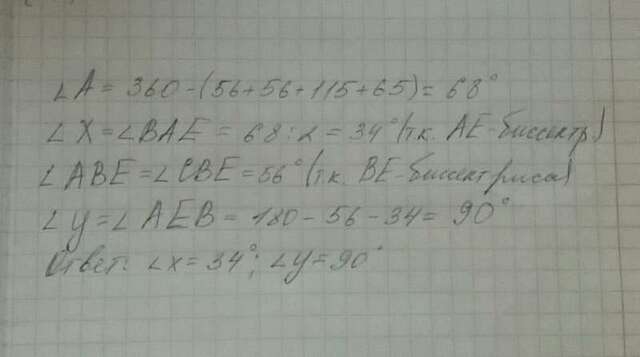 ∠A = 360 - (56+56+115+65) = 68°
∠X = ∠BAE = 68:2 = 34° (т.к. AE-биссектр.)
∠ABE = ∠CBE = 56° (т.к. BE-биссектриса)
∠y = ∠AEB = 180 - 56 - 34 = 90°
Ответ: ∠x = 34°; ∠y = 90°